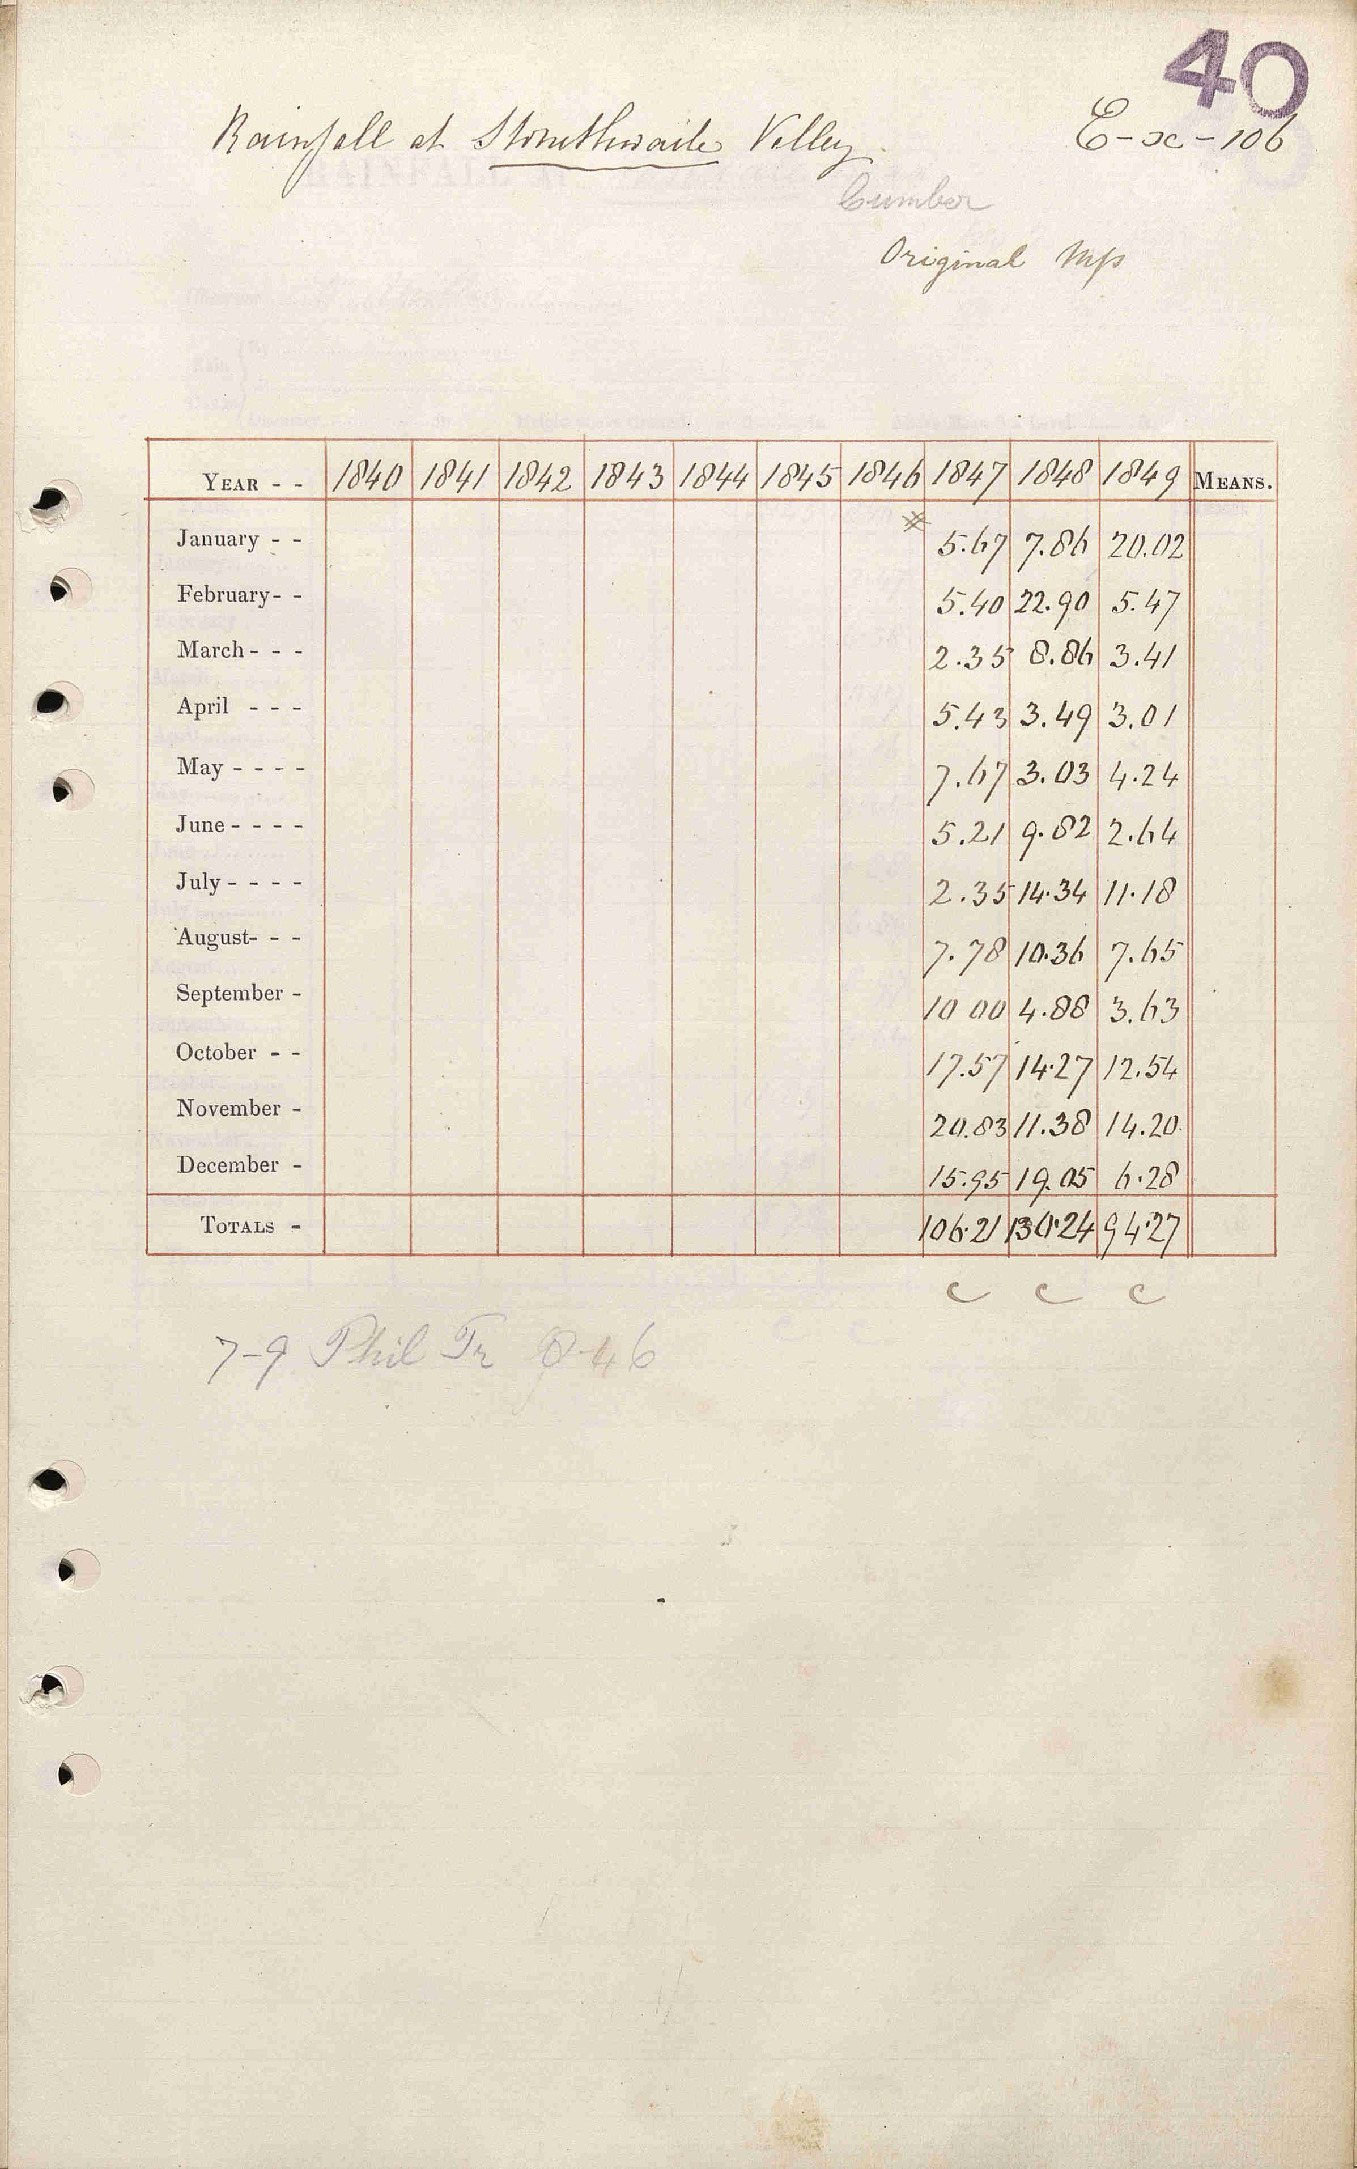 40
Rainfall at Stonethwaite Valley. E-x-106
Cumber
Original Mfs
YEAR - - 1840 1841 1842 1843 1844 1845 1846 1847 1848 1849 MEANS.
January - - * 5.67 7.86 20.02
February- - 5.40 22.90 5.47
March- - - 2.35 8.86 3.41
April - - - 5.43 3.49 3.01
May - - - - 7.67 3.03 4.24
June - - - - 5.21 9.82 2.64
July - - - - 2.35 14.34 11.18
August- - - 7.78 10.36 7.65
September - 10 00 4.88 3.63
October - - 17.57 14.27 12.54
November - 20.83 11.38 14.20
December - 15.95 19.05 6.28
TOTALS - 106.21 130.24 94.27
c c c
7-9 Phil Tr